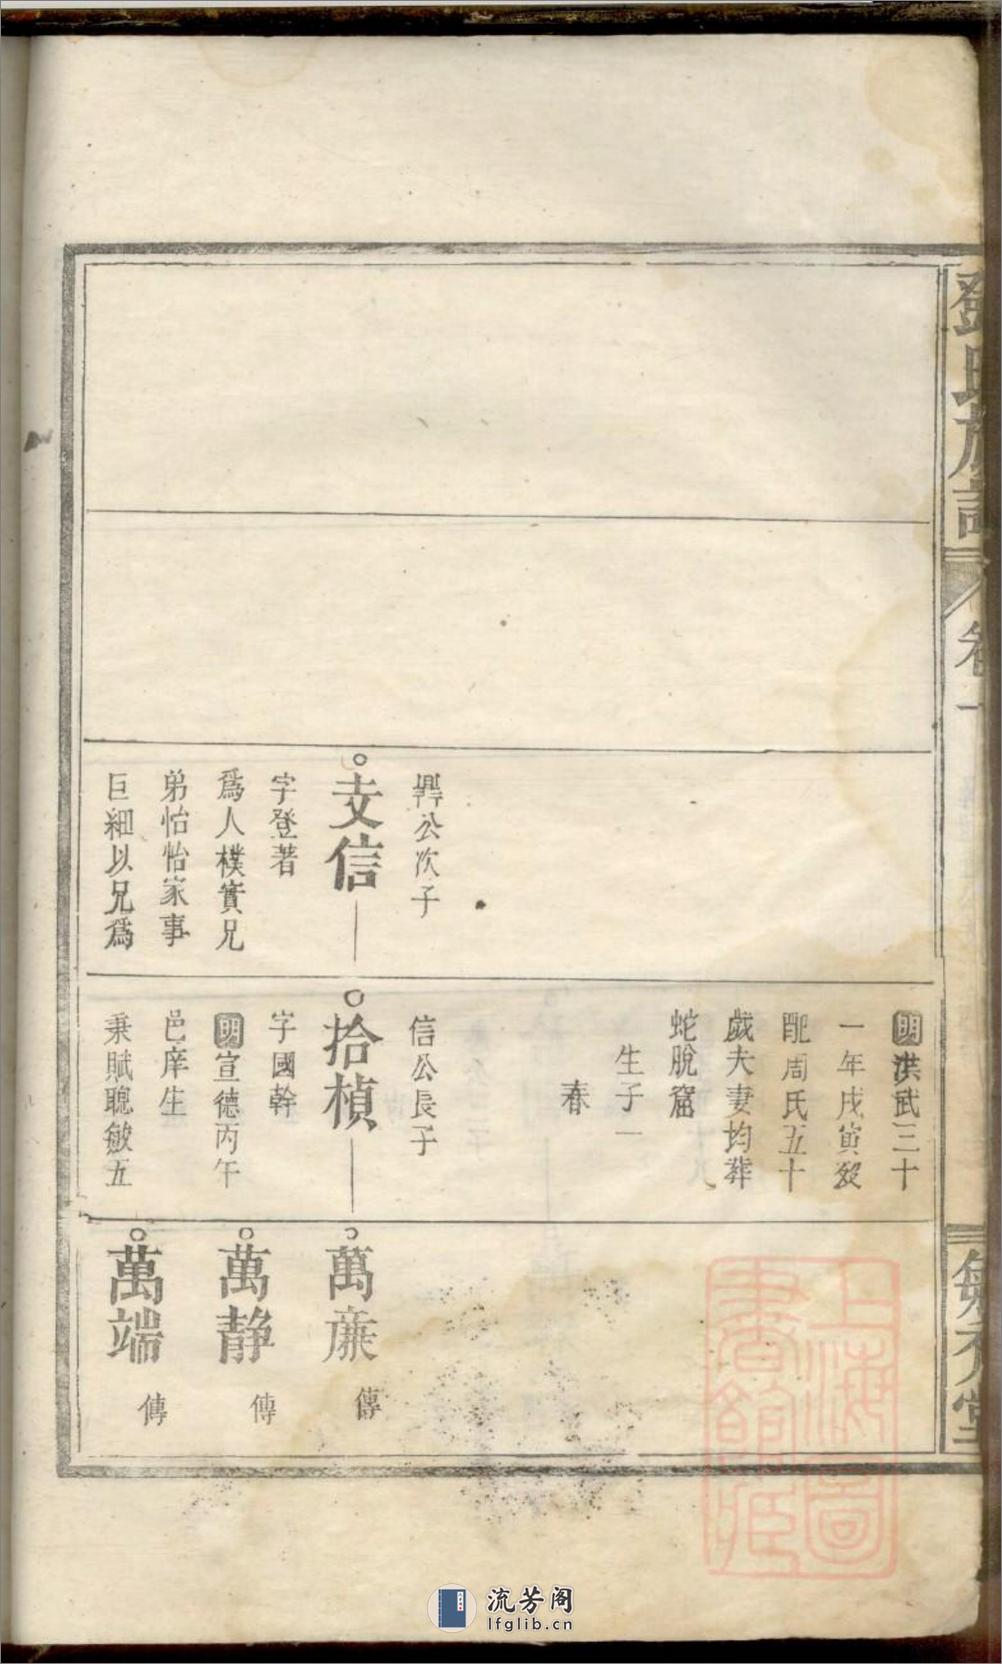 鄧氏族譜
卷一
興公次子
文信
字登著
爲人樸實兄
弟怡怡家事
巨細以兄爲
明洪武三十
一年戊寅歿
配周氏五十
歲夫妻均葬
蛇脫窟
生子一
春
信公長子
拾楨
字國幹
明宣德丙午
邑庠生
秉賦聰敏五
萬廉
傳
萬靜
傳
萬端
傳
堂
上海圖
書館藏
流芳阁
lfglib.cn